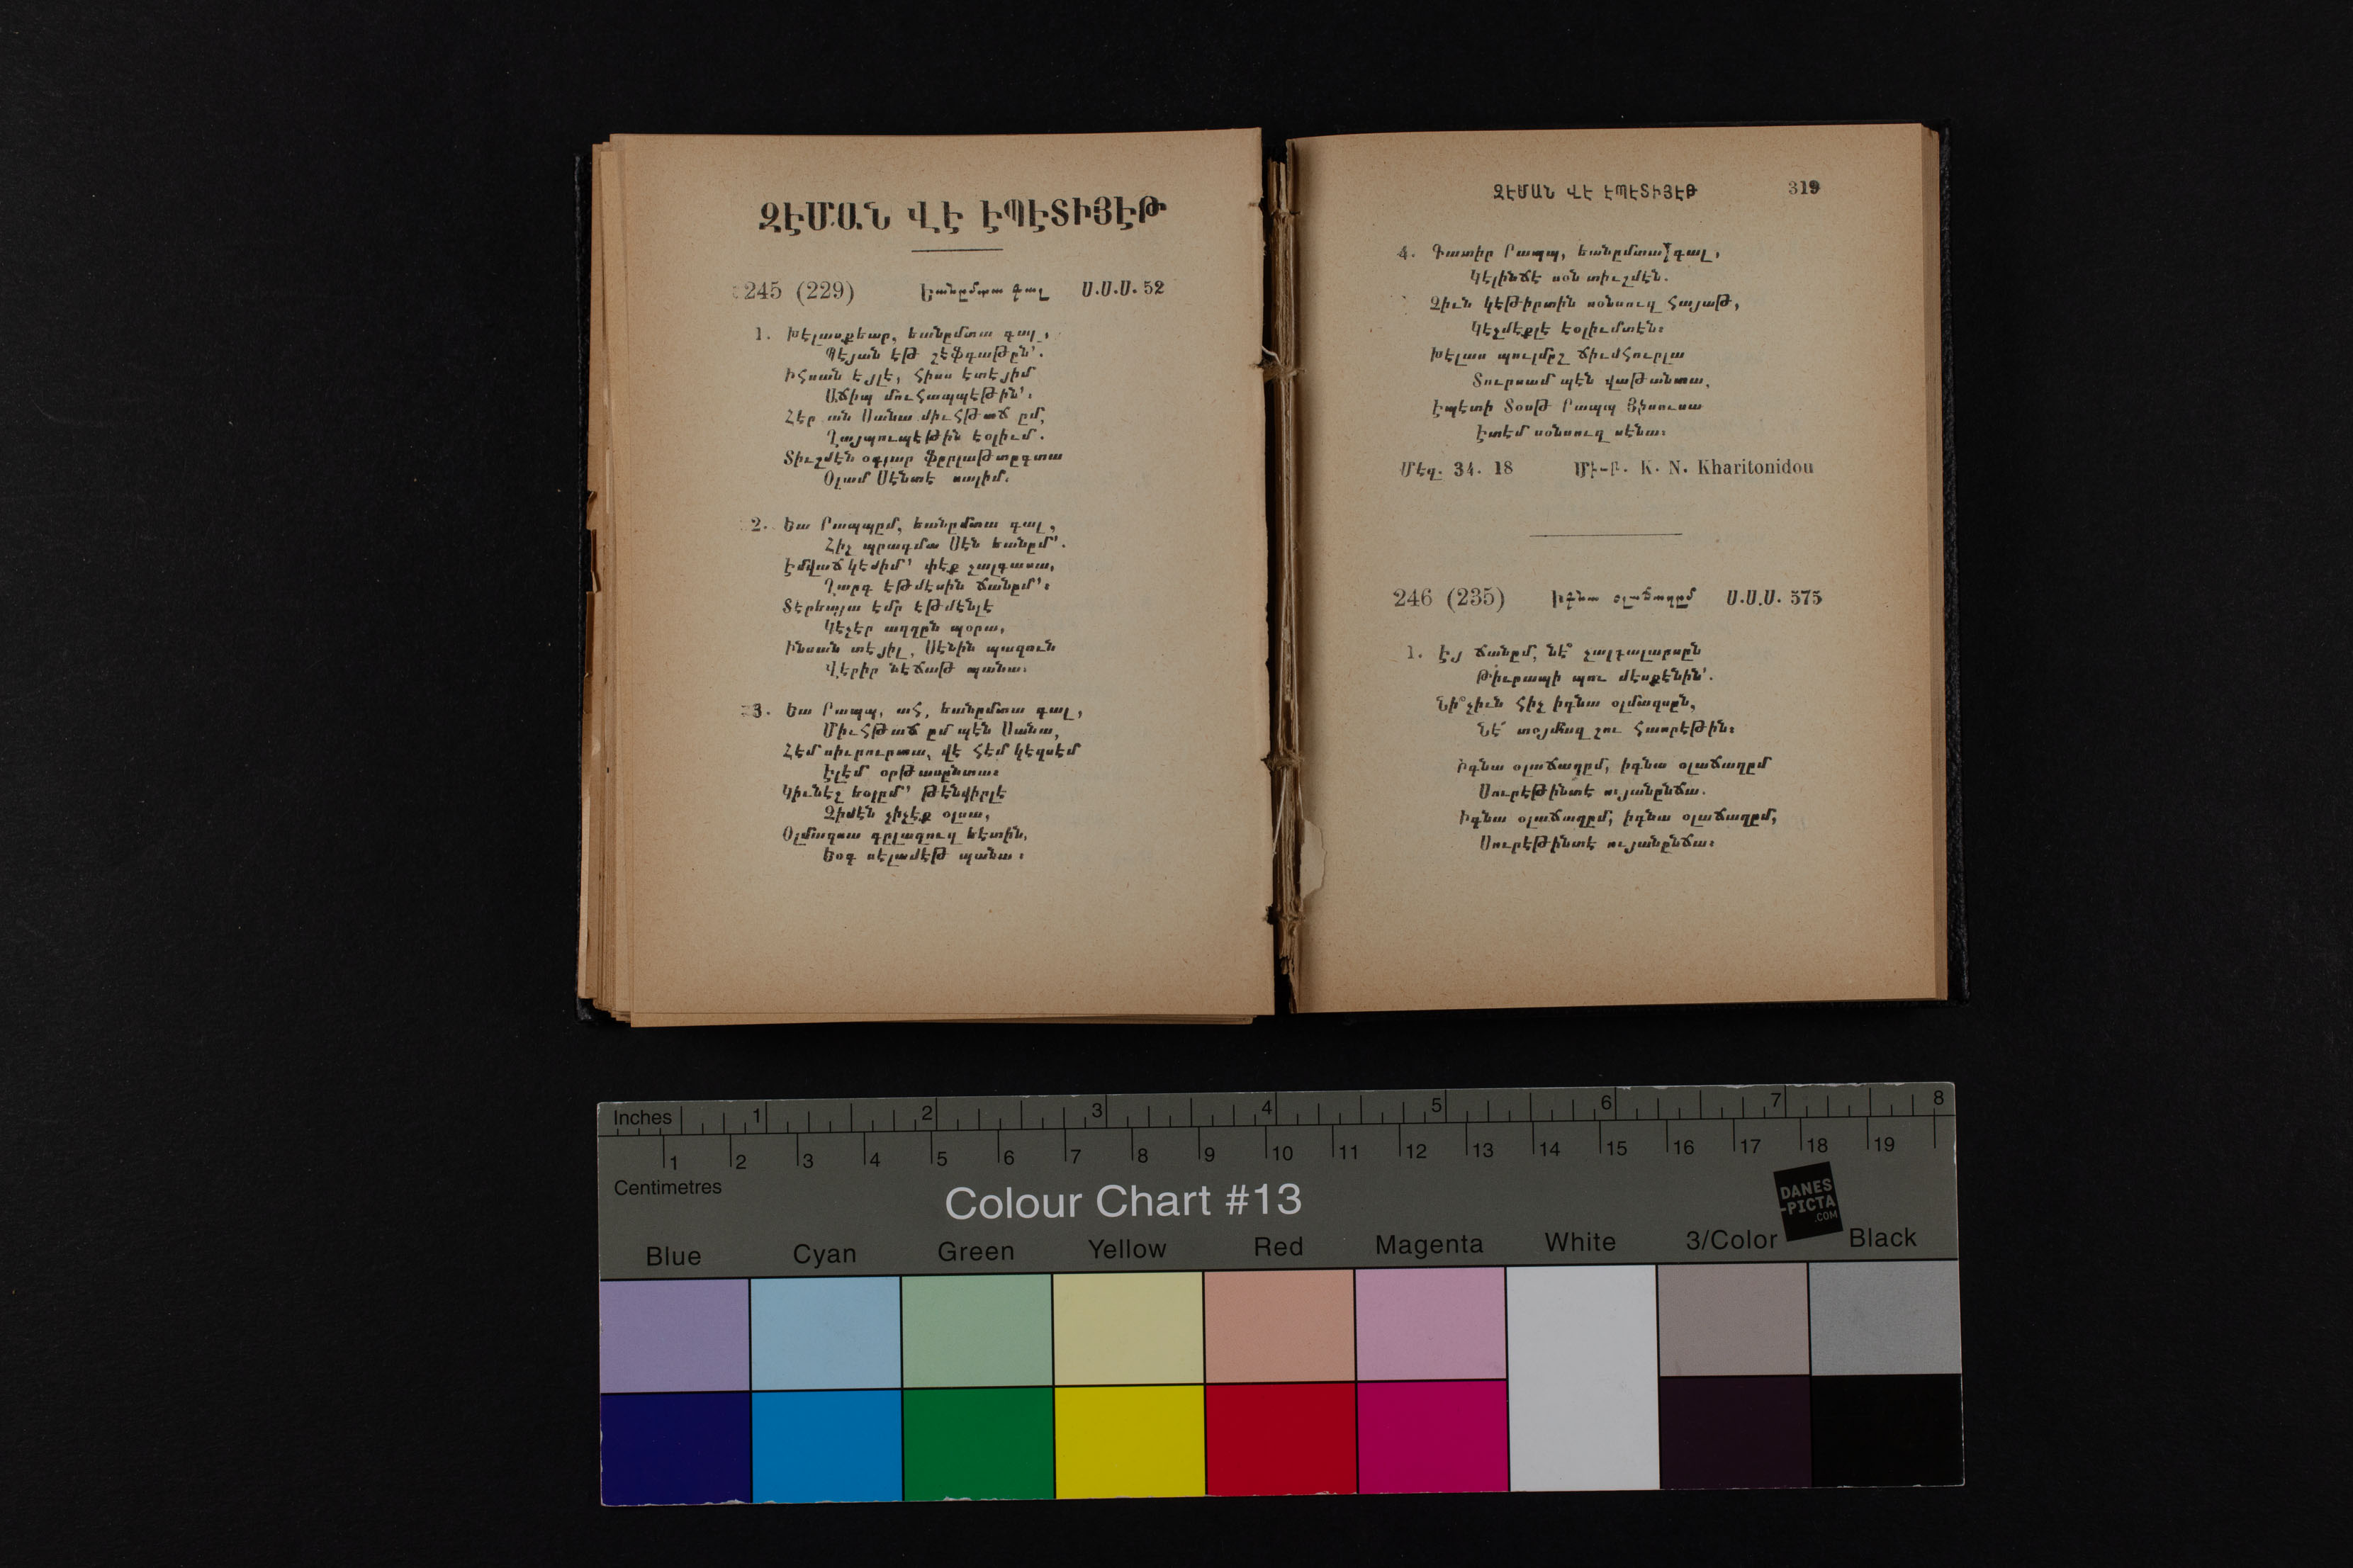 ԶԷՄԱՆ ՎԷ ԷՊԷՏԻՅԷԹ
245 (229) Եանըմտա գալ Ս.Ս.Ս. 52
1. Խէլասքեար, եանըմտա գալ,
Պէյան էթ շէֆգաթըն՚.
Իհսան էյլէ, հիսս էտէյիմ
Աճիպ մուհապպէթին՚։
Հէր ան Սանա միւհթաճ ըմ,
Ղայպուպէթին էօլիւմ.
Տիւշմէն օգլար ֆըրլաթտըգտա
Օլամ Սէնտէ սալիմ։
2. Եա Րապպըմ, եանըմտա գալ,
Հիչ պրագմա Սէն եանըմ՚.
Էմվաճ կեմիմ՚ փէք չալգասա,
Ղարգ էթմէսին ճանըմ՚։
Տէրեայա էմր էթմէնլէ
Կէչէր աղղըն պօրա,
Ինսան տէյիլ, Սէնին պազուն
Վէրիր նէճաթ պանա։
3. Եա Րապպ, ահ, եանըմտա գալ,
Միւհթաճ ըմ պէն Սանա,
Հէմ սիւրուրտա, վէ հէմ կէզսէմ
Էլէմ օրթասընտա։
Կիւնէշ եօլըմ՚ թէնվիրլէ
Զիմէն չիչէք օլսա,
Օլմազսա գըլագուզ Եէտին,
Եօգ սէլամէթ պանա։
ԶԷՄԱՆ ՎԷ ԷՊԷՏԻՅԷԹ 319
4. Գատիր Րապպ, եանըմտա գալ,
Կէլինճէ սօն տիւշմէն.
Զիւն կէթիրտին սօնսուզ հայաթ,
Կէչմէքլէ էօլիւմտէն։
Խէլաս պուլմըշ ճիւմհուրլա
Տուրսամ պէն վաթանտա,
Էպէտի Տօսթ Րապպ Յիսուսա
Էտէմ սօնսուզ սէնա։
Մէզ. 34. 18 Մի-բ. K. N. Kharitonidou
246 (235) Իգնա օլաճաղըմ Ս.Ս.Ս. 575
1. Էյ ճանըմ, նէ՞ չալգալարսըն
Թիւրապի պու մէսքէնին՚.
Նի՞չիւն հիչ իգնա օլմազսըն,
Նէ՛ տօյմազ շու հասրէթին։
Իգնա օլաճաղըմ, իգնա օլաճաղըմ
Սուրէթինտէ ույանընճա.
Իգնա օլաճաղըմ, իգնա օլաճաղըմ,
Սուրէթինտէ ույանընճա։
Inches 1 2 3 4 5 6 7 8
1 2 3 4 5 6 7 8 9 10 11 12 13 14 15 16 17 18 19
Centimetres
Colour Chart #13
DANES
-PICTA
.COM
Blue Cyan Green Yellow Red Magenta White 3/Color Black